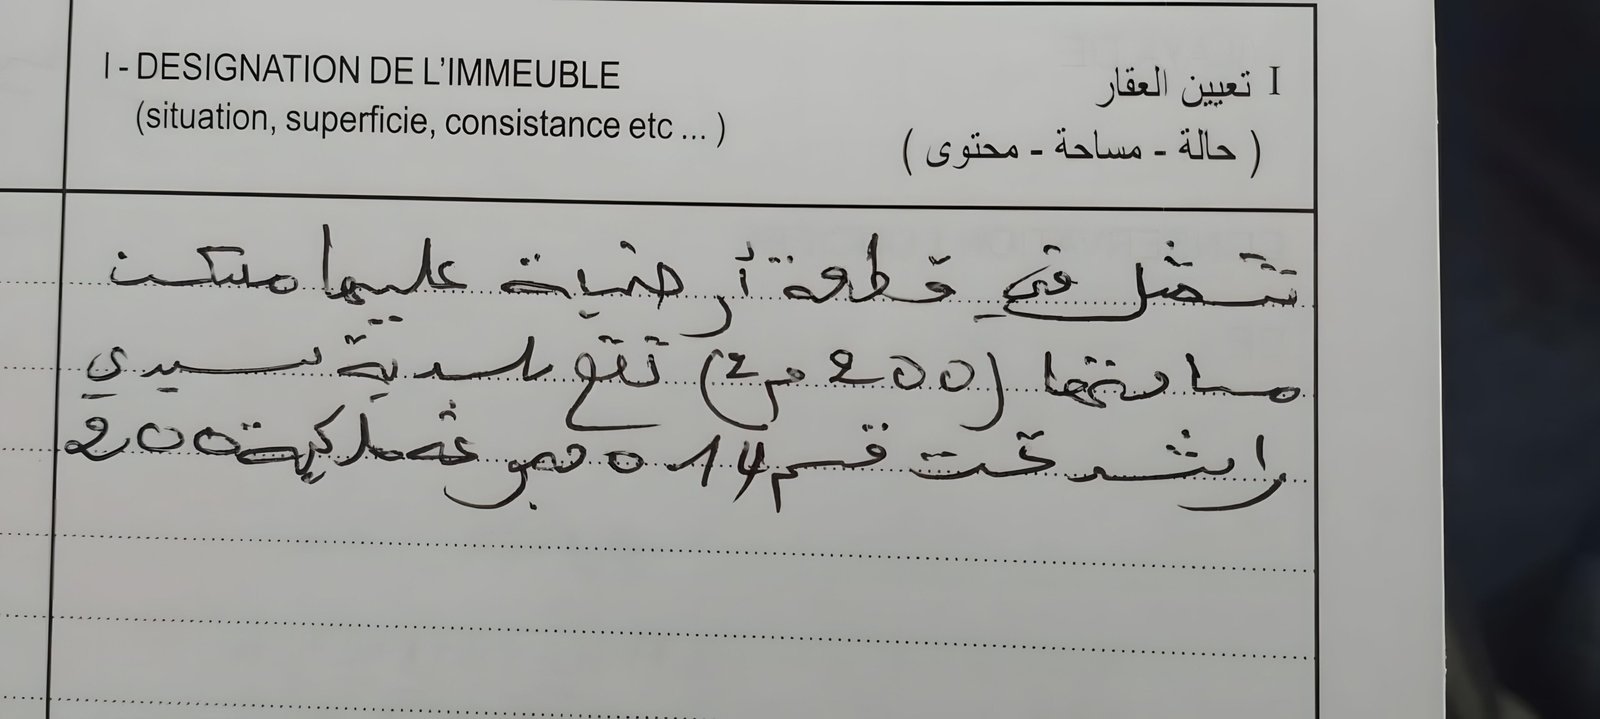 I - DESIGNATION DE L'IMMEUBLE
(situation, superficie, consistance etc ... )
I تعيين العقار
( حالة - مساحة - محتوى )
تتمثل في قطعة أرضية عليها مسكن
مساحتها (200 م2) تقع بلدية سيدي
راشد تحت قسم 014 مجموعة ملكية 200